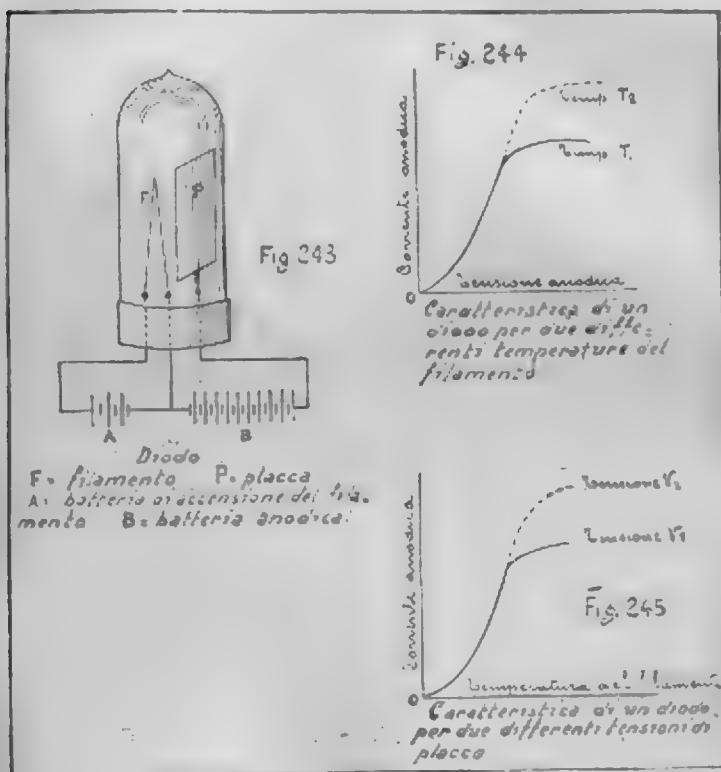 Fig. 243
F
P
A
B
Diodo
F = filamento P = placca
A = batteria di accensione del fila-
mento B = batteria anodica
Fig. 244
Corrente anodica
Temp T2
Temp T1
O
Tensione anodica
Caratteristica di un
diodo per due diffe-
renti temperature del
filamento
Corrente anodica
Tensione V2
Tensione V1
Fig. 245
O
Temperatura del filamento
Caratteristica di un diodo,
per due differenti tensioni di
placca